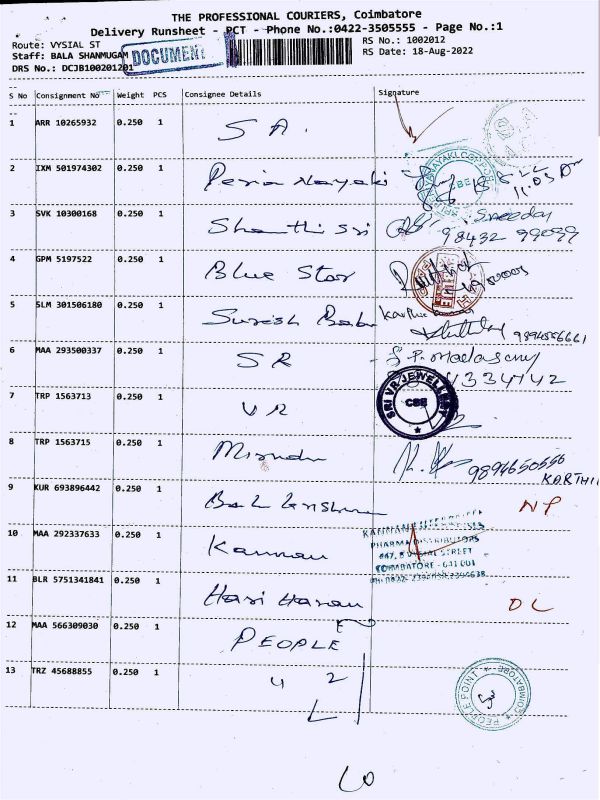 THE PROFESSIONAL COURIERS, Coimbatore
Delivery Runsheet - PCT - Phone No.:0422-3505555 - Page No.:1
Route: VYSIAL ST RS No.: 1002012
Staff: BALA SHANMUGAM DOCUMENT RS Date: 18-Aug-2022
DRS No.: DCJB100201201
S No Consignment No Weight PCS Consignee Details Signature
1 ARR 10265932 0.250 1 S A.
2 IXM 501974302 0.250 1 Peria Nayaki CBE 11.03
3 SVK 10300168 0.250 1 Shanthi Sri 98432 99099
4 GPM 5197522 0.250 1 Blue Star
5 SLM 301506180 0.250 1 Suresh Babu
6 MAA 293500337 0.250 1 S R
7 TRP 1563713 0.250 1 V R SRI VR JEWELLERY CBE
8 TRP 1563715 0.250 1 9894650550
KARTHI
9 KUR 693896442 0.250 1 NP
10 MAA 292337633 0.250 1 Kannan
PHARMA DISTRIBUTORS
COIMBATORE - 641 001
11 BLR 5751341841 0.250 1 Hari Haran DL
12 MAA 566309030 0.250 1 PEOPLE
13 TRZ 45688855 0.250 1 4 2 PEOPLE POINT COIMBATORE